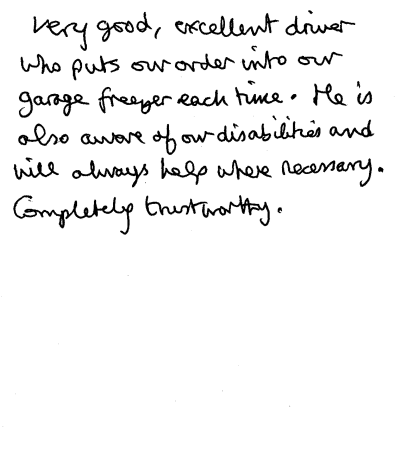 very good, excellent driver
who puts our order into our
garage freezer each time. He is
also aware of our disabilities and
will always help where necessary.
Completely trustworthy.